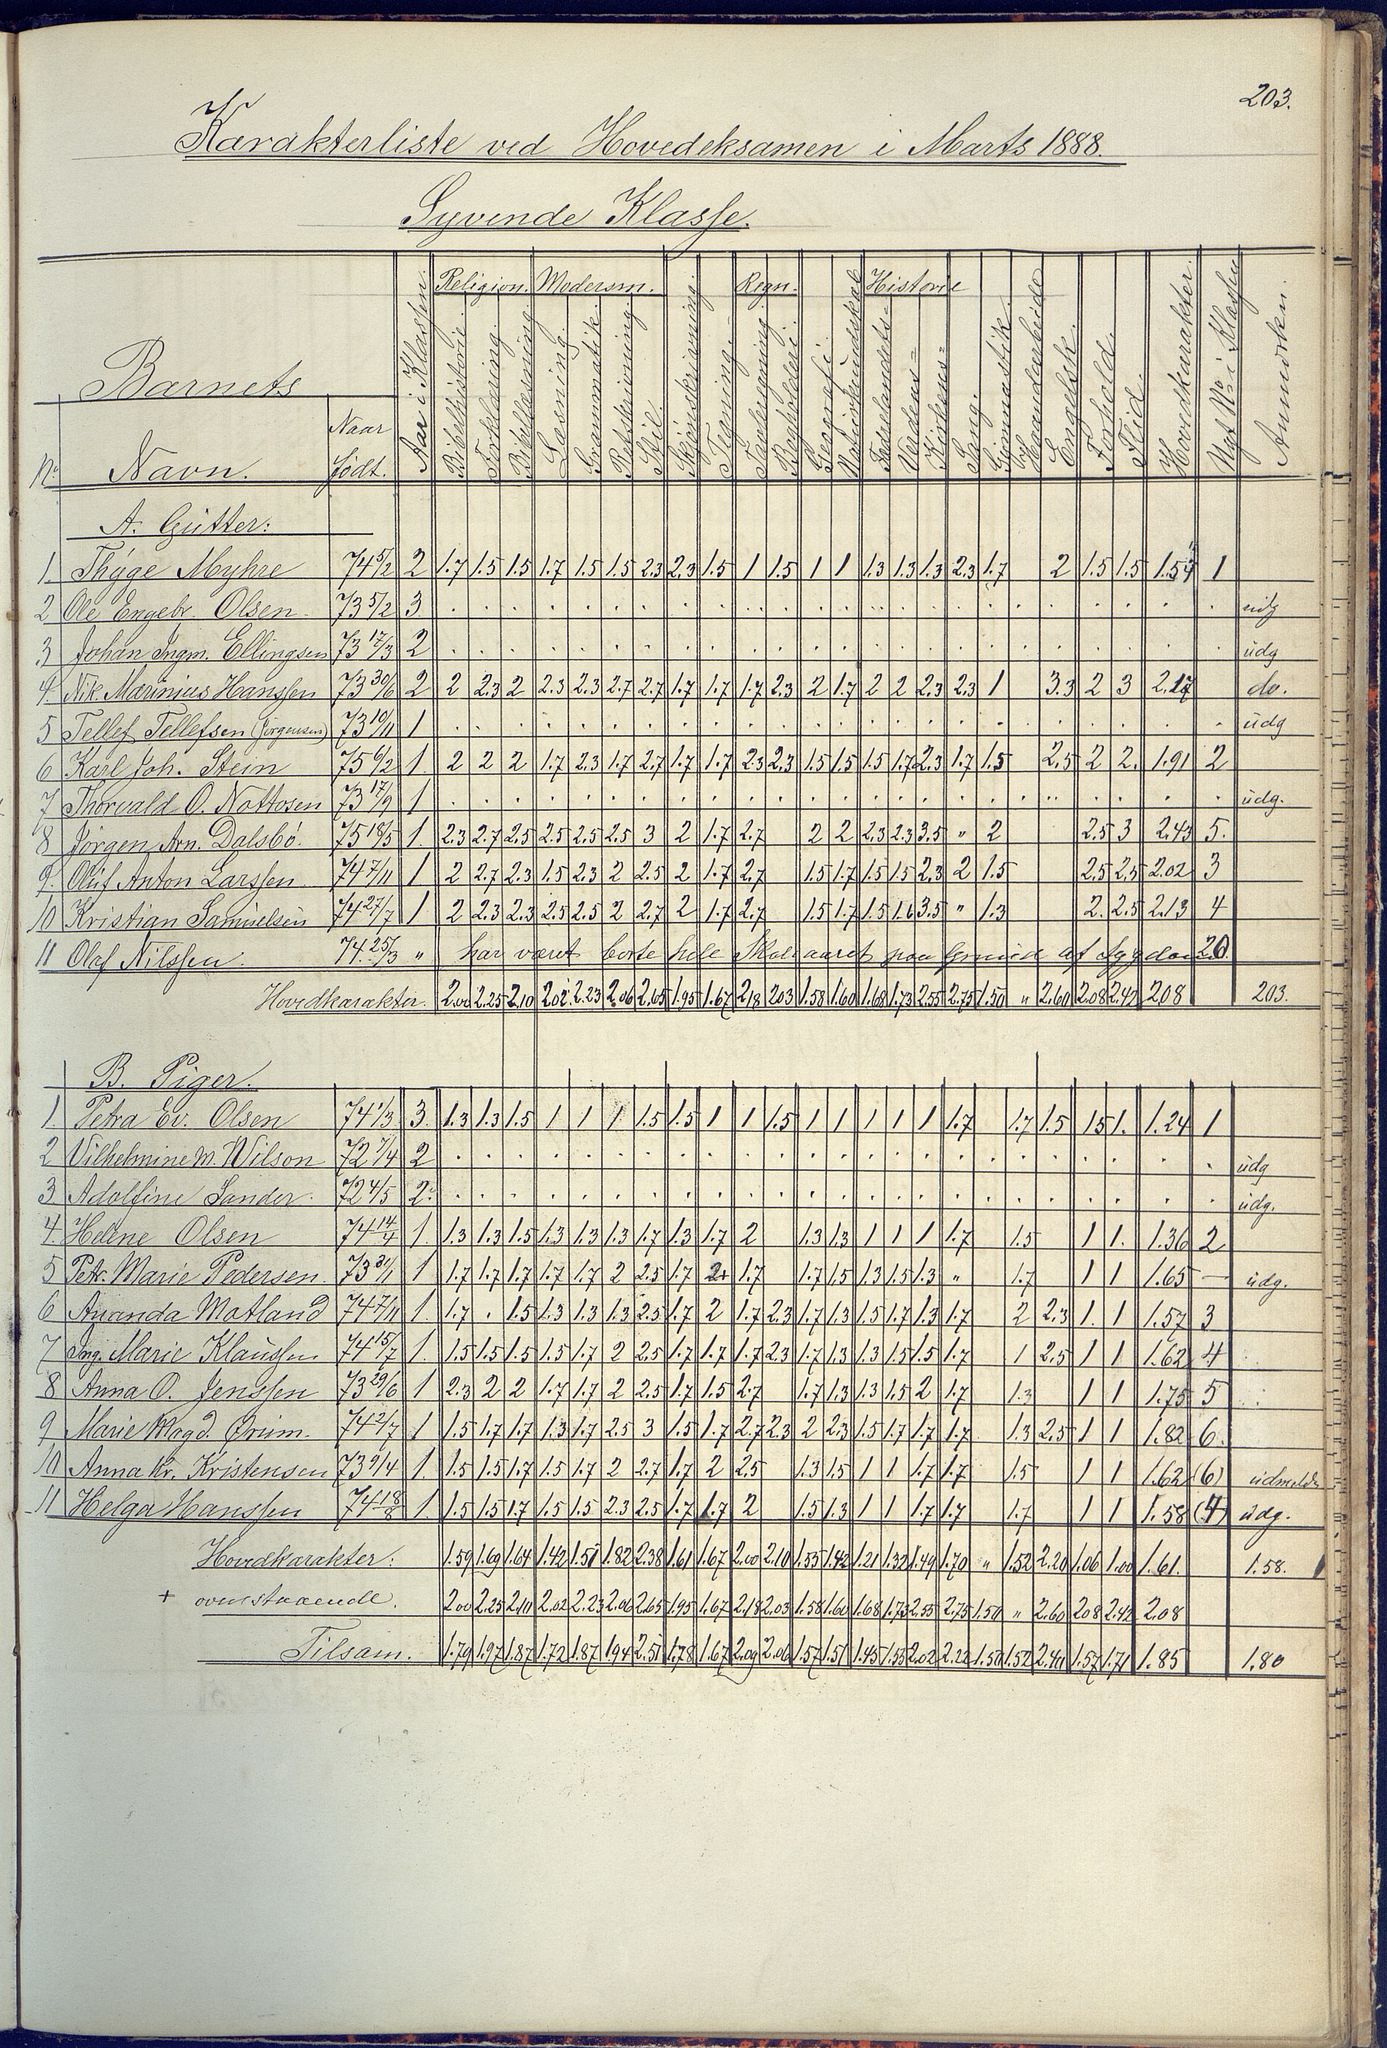 203.
Karakterliste ved Hovedeksamen i Marts 1888.
Syvende Klasse.
Barnets
No Navn. Naar født. Aar i Klassen. Religion. Bibelhistorie. Forklaring. Bibellæsning. Modersm. Læsning. Grammatik. Retskrivning. Stil. Skjønskrivning. Tegning. Regn. Tavleregning. Bogholderi. Geografi. Naturkundskab. Historie Fædrelandets- Verdens- Kirkens- Sang. Gymnastik. Haandarbeide Engelsk. Forhold. Flid. Hovedkarakter. Nyt No i Klassen Anmærkn.
A. Gutter:
1. Thyge Myhre 74 5/2 2 1.7 1.5 1.5 1.7 1.5 1.5 2.3 2.3 1.5 1 1.5 1 1 1.3 1.3 1.3 2.3 1.7 2 1.5 1.5 1.5 1
2 Ole Engebr. Olsen. 73 5/2 3 udg
3 Johan Ingm. Ellingsen 73 17/3 2 udg
4. Nik. Marinius Hanssen 73 30/6 2 2 2.3 2 2.3 2.3 2.7 2.7 1.7 1.7 1.7 2.3 2 1.7 2 2 2.3 2.3 1 3.3 2 3 2.17 do.
5 Tellef Tellefsen (Jørgensen) 73 10/11 1 udg
6 Karl Joh. Stein 75 6/2 1. 2 2 2 1.7 2.3 1.7 2.7 1.7 1.7 2.3 2.3 1.5 1.5 1.5 1.7 2.3 1.7 1.5 2.5 2 2. 1.91 2
7 Thorvald O. Nottosen 73 17/9 1 udg.
8 Jørgen Arn. Dalsbø. 75 18/5 1. 2.3 2.7 2.5 2.5 2.5 2.5 3 2 1.7 2.7 2 2 2.3 2.3 3.5 " 2 2.5 3 2.43 5.
9. Oluf Anton Larssen. 74 7/11 1 2 2.7 2.3 1.5 2.3 2 2.5 2 1.7 2.7 1.5 1.7 1.5 1.5 2.3 2 1.5 2.5 2.5 2.02 3
10 Kristian Samuelsen 74 27/7 1 2 2.3 2.3 2.5 2.5 2 2.7 2 1.7 2.7 1.5 1.7 1.5 1.6 3.5 " 1.3 2. 2.5 2.13 4
11 Olaf Nilssen. 74. 25/3 " har været borte hele Skoleaaret paa Grund af Sygdom 20
Hovedkarakter. 2.00 2.25 2.10 2.02 2.23 2.06 2.65 1.95 1.67 2.18 2.03 1.58 1.60 1.68 1.73 2.55 2.75 1.50 " 2.60 2.08 2.42 2.08 203.
B. Piger.
1. Petra Ev. Olsen 74 1/3 3. 1.3 1.3 1.5 1 1 1 1.5 1.5 1 1 1.5 1 1 1 1 1 1.7 1.7 1.5 1.5 1. 1.24 1
2 Vilhelmine M. Wilson 72 7/4 2 udg
3 Adolfine Sander. 72 4/5 2. udg.
4. Helene Olsen 74 14/4 1. 1.3 1.3 1.5 1.3 1.3 1.3 1.7 1.3 1.7 2 1.3 1.3 1 1 1 1.7 1.5 1 1. 1.36 2
5 Petr. Marie Pedersen. 73 31/1 1 1.7 1.7 1.7 1.7 1.7 2 2.5 1.7 2+ 1.7 1.7 1.5 1.3 1.5 1.3 " 1.7 1 1 1.65 — udg.
6 Ananda Motland 74 7/11 1. 1.7 . 1.5 1.3 1.3 1.3 2.5 1.7 2 1.7 2.3 1.7 1.3 1.5 1.7 1.3 1.7 2 2.3 1. 1 1.57 3
7 Ing. Marie Klaussen 74 15/7 1. 1.5 1.5 1.5 1.5 1.7 2 2.5 1.7 1.7 1.7 2.3 1.7 1.3 1.3 1.5 1.5 1.7 1 2.5 1 1 1.62 4
8 Anna O. Jenssen 73 29/6 1 2.3 2 2 1.7 1.7 2 2.5 1.7 1.5 2.7 1.7 1.3 1.3 1.5 2 1.7 1.3 1 1 1.75 5
9 Marie Magd. Ørum. 74 2/7 1 1.5 1.7 1.7 1.3 1.7 2.5 3 1.5 1.7 2.7 2.3 2 2.3 1.5 1.7 1.7 1.7 1.3 2.5 1 1 1.82 6.
10 Anna Kr. Kristensen 73 9/4 1. 1.5 1.5 1.7 1.5 1.7 2 2.7 1.7 2 2.5 1.3 1.5 1 1 1.7 1.7 1.5 1 1 1.62 (6) udmeldt
11 Helga Hanssen 74 18/8 1. 1.5 1.5 1.7 1.5 1.5 2.3 2.5 1.7 1.7 2 1.5 1.3 1 1 1.7 1.7 1.7 1 1 1.58 (4) udg.
Hovedkarakter: 1.59 1.69 1.64 1.42 1.51 1.82 2.38 1.61 1.67 2.00 2.10 1.55 1.42 1.21 1.32 1.49 1.70 " 1.52 2.20 1.06 1.00 1.61. 1.58.
+ ovenstaaende. 2.00 2.25 2.10 2.02 2.23 2.06 2.65 1.95 1.67 2.18 2.03 1.58 1.60 1.68 1.73 2.55 2.75 1.50 " 2.60 2.08 2.42 2.08
Tilsam. 1.79 1.97 1.87 1.72 1.87 1.94 2.51 1.78 1.67 2.09 2.06 1.57 1.51 1.45 1.53 2.02 2.22 1.50 1.52 2.40 1.57 1.71 1.85 1.80